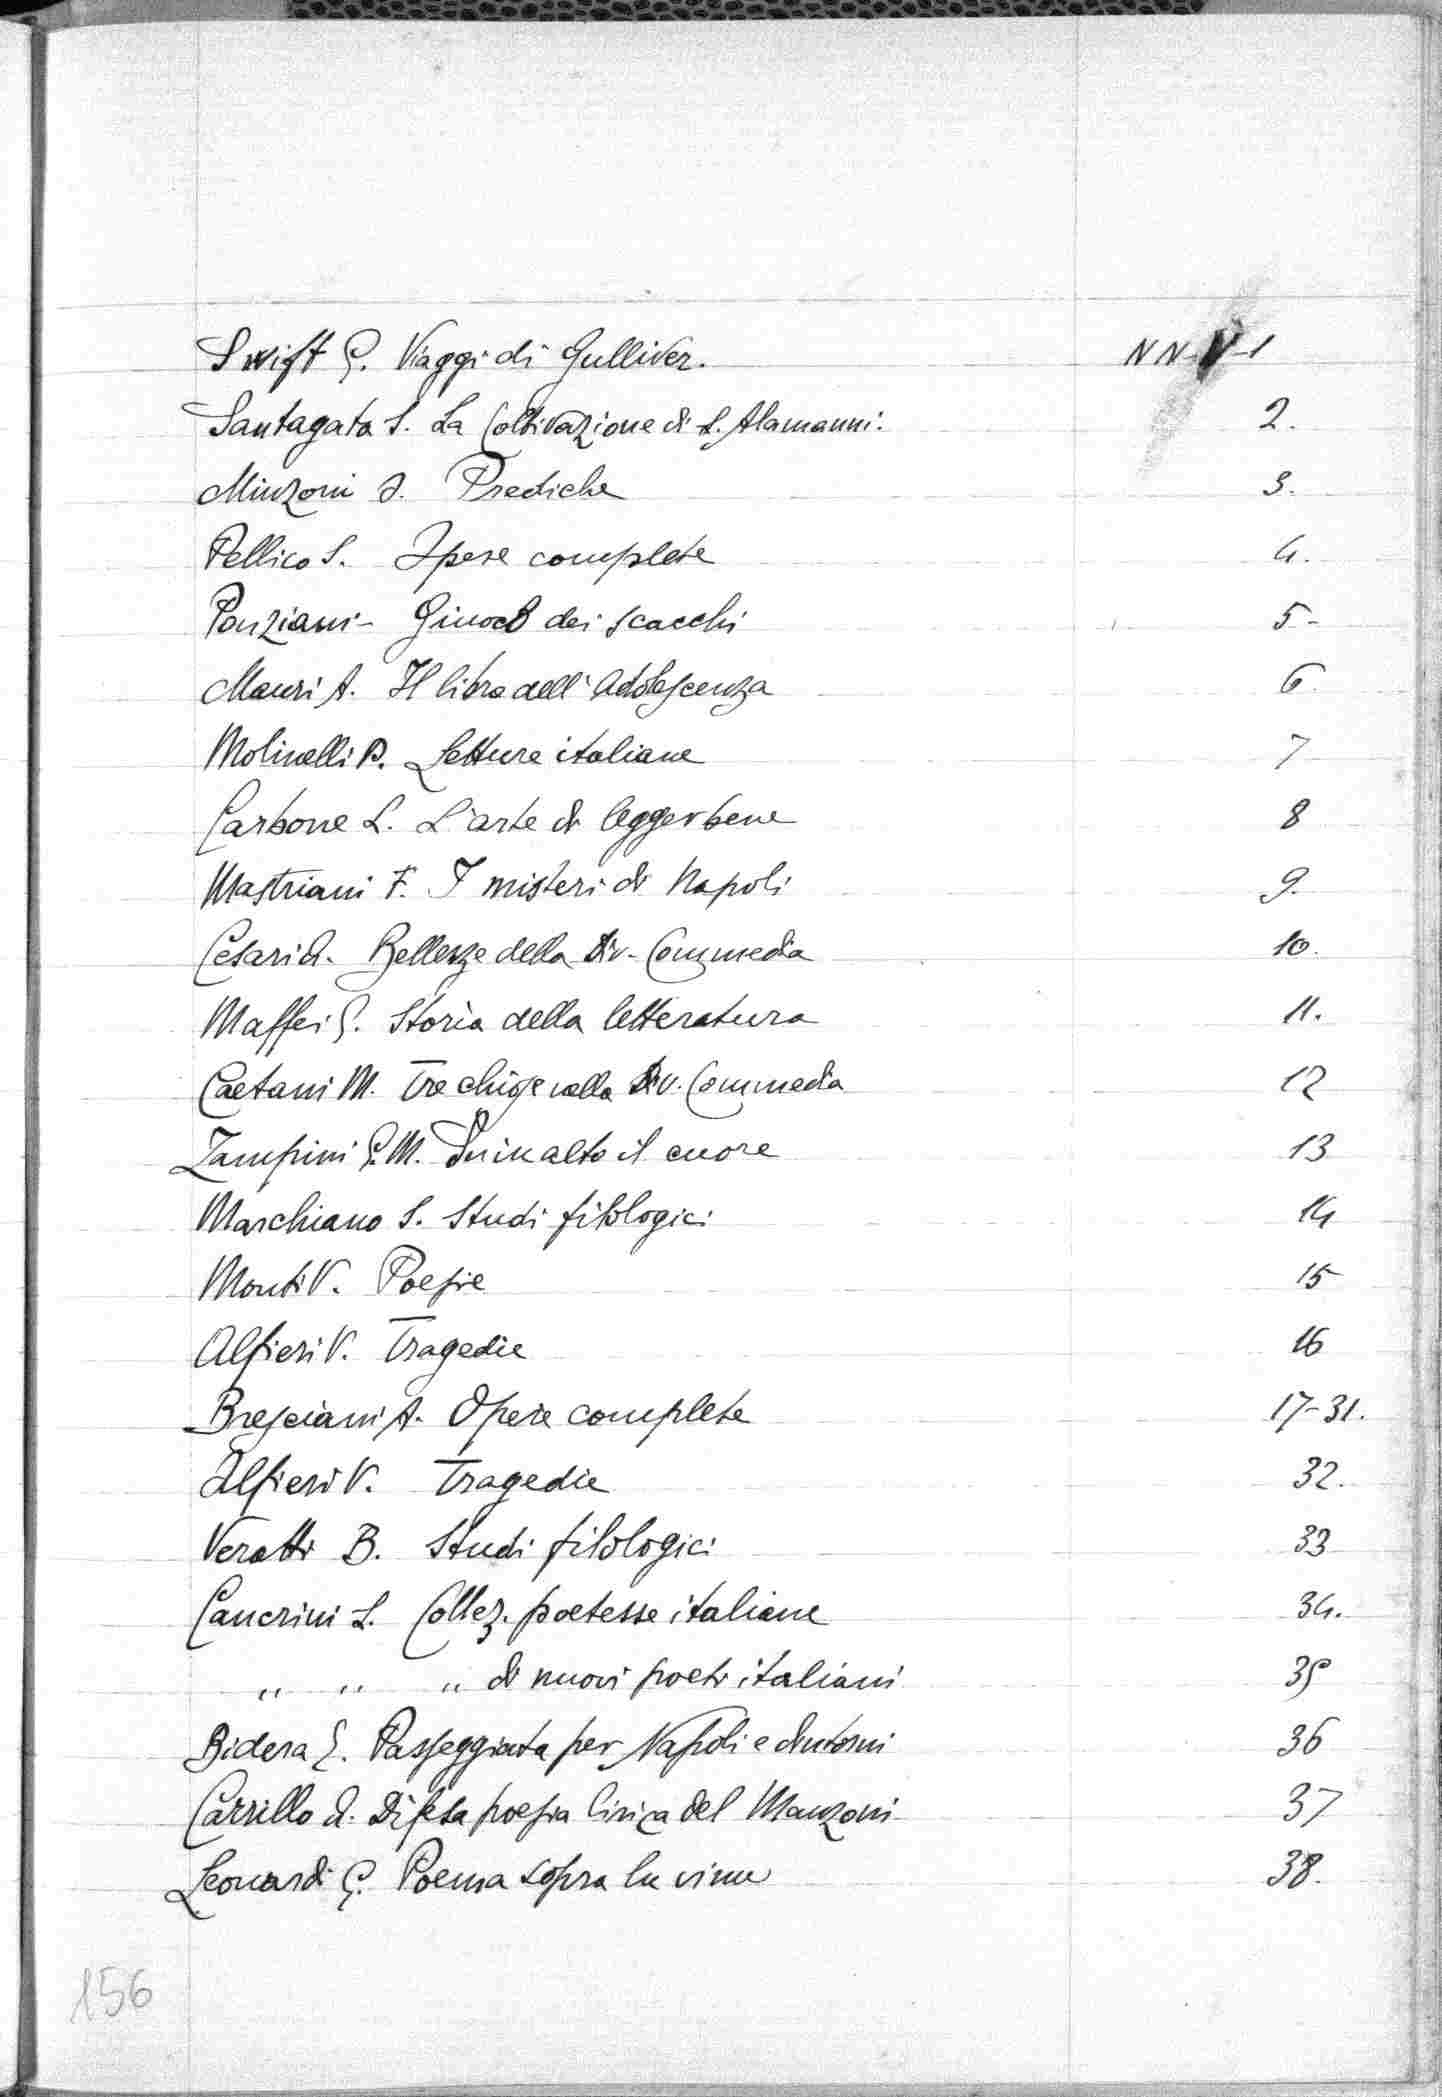 Swift G. Viaggi di Gulliver. NN-V-1
Santagata S. La Coltivazione di L. Alamanni. 2.
Minzoni O. Prediche 3.
Pellico S. Opere complete 4.
Ponziani - Giuoco dei scacchi 5-
Mauri A. Il libro dell'adolescenza 6
Molinelli P. Letture italiane 7
Carbone L. L'arte di legger bene 8
Mastriani F. I misteri di Napoli 9.
Cesari A. Bellezze della Div. Commedia 10.
Maffei G. Storia della letteratura 11.
Caetani M. Tre chiose nella Div. Commedia 12
Zampini G. M. in alto il cuore 13
Marchiano S. Studi filologici 14
Monti V. Poesie 15
Alfieri V. Tragedie 16
Bresciani A. Opere complete 17-31.
Alfieri V. Tragedie 32.
Veratti B. Studi filologici 33
Cancrini L. Collez. poetesse italiane 34.
„ „ „ di nuovi poeti italiani 35
Bidera E. Passeggiata per Napoli e dintorni 36
Carrillo A. Difesa poesia lirica del Manzoni 37
Leonardi G. Poema sopra lu vinu 38.
156